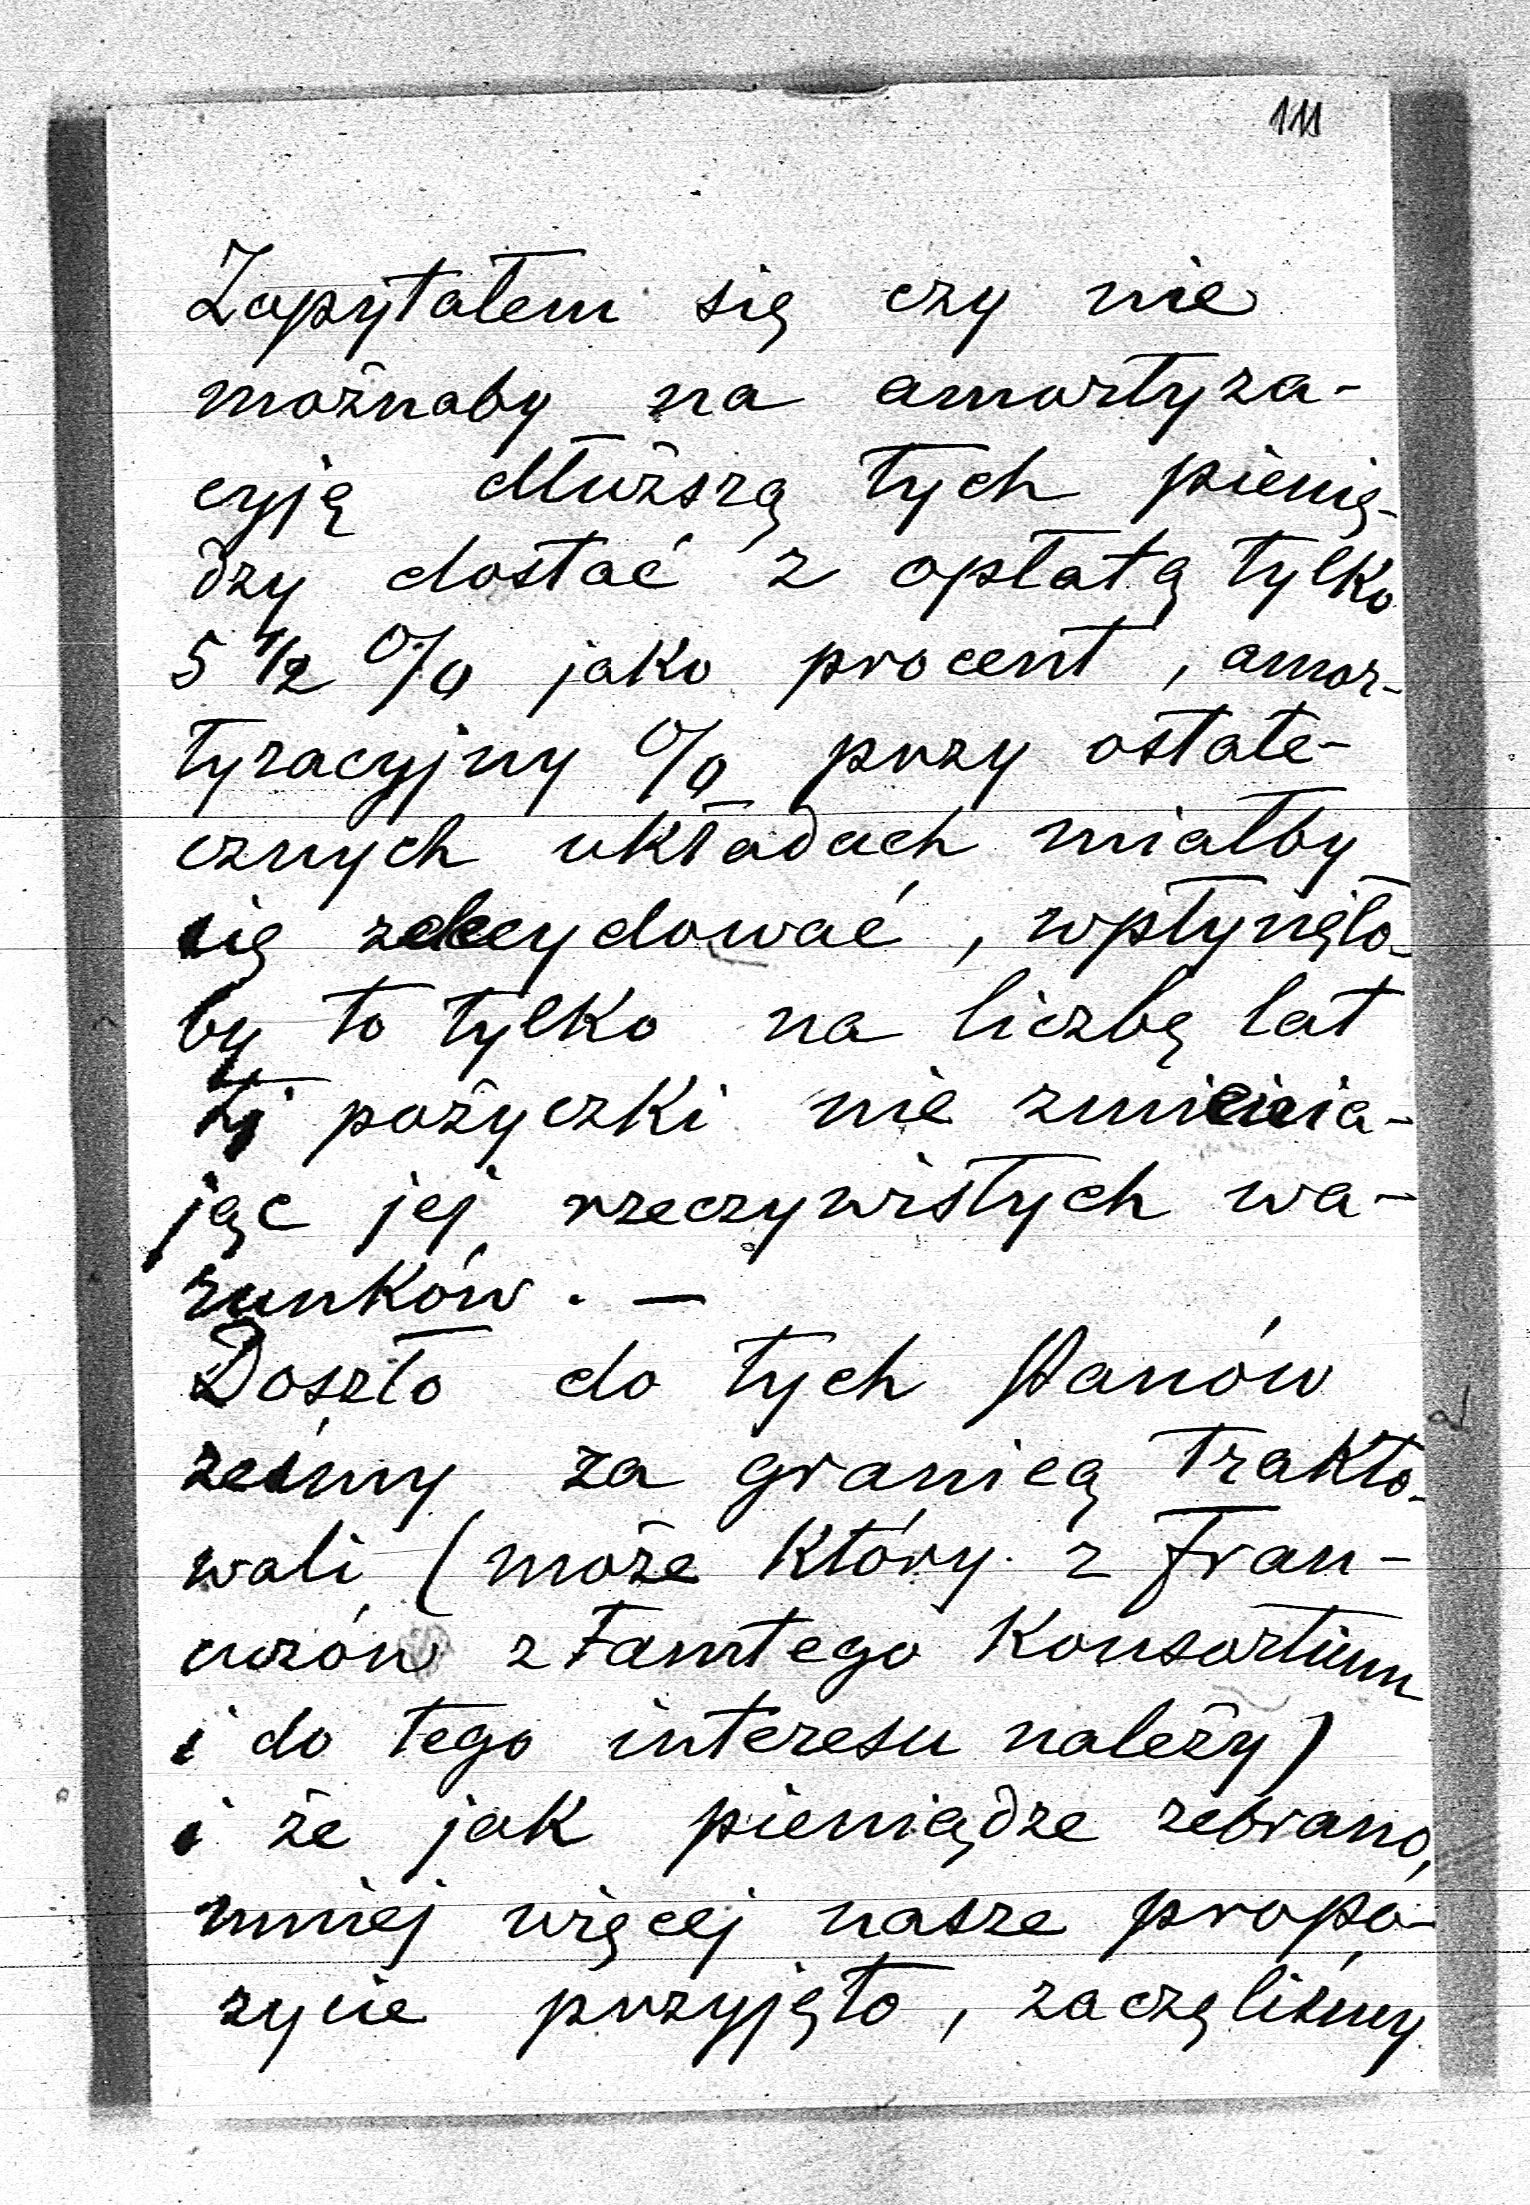 111
Zapytałem się czy nie
możnaby na amortyza-
cyję dłuższą tych pienię-
dzy dostać z opłatą tylko
5 1/2 % jako procent, amor-
tyzacyjny % przy ostate-
cznych układach miałby
się zdecydować, wpłynęło-
by to tylko na liczbę lat
tej pożyczki nie zmienia-
jąc jej rzeczywistych wa-
runków. —
Doszło do tych Panów
żeśmy za granicą trakto-
wali (może który z Fran-
cuzów z tamtego Konsortium
i do tego interesu należy)
i że jak pieniądze zebrano,
mniej więcej nasze propo-
zycie przyjęto, zaczęliśmy